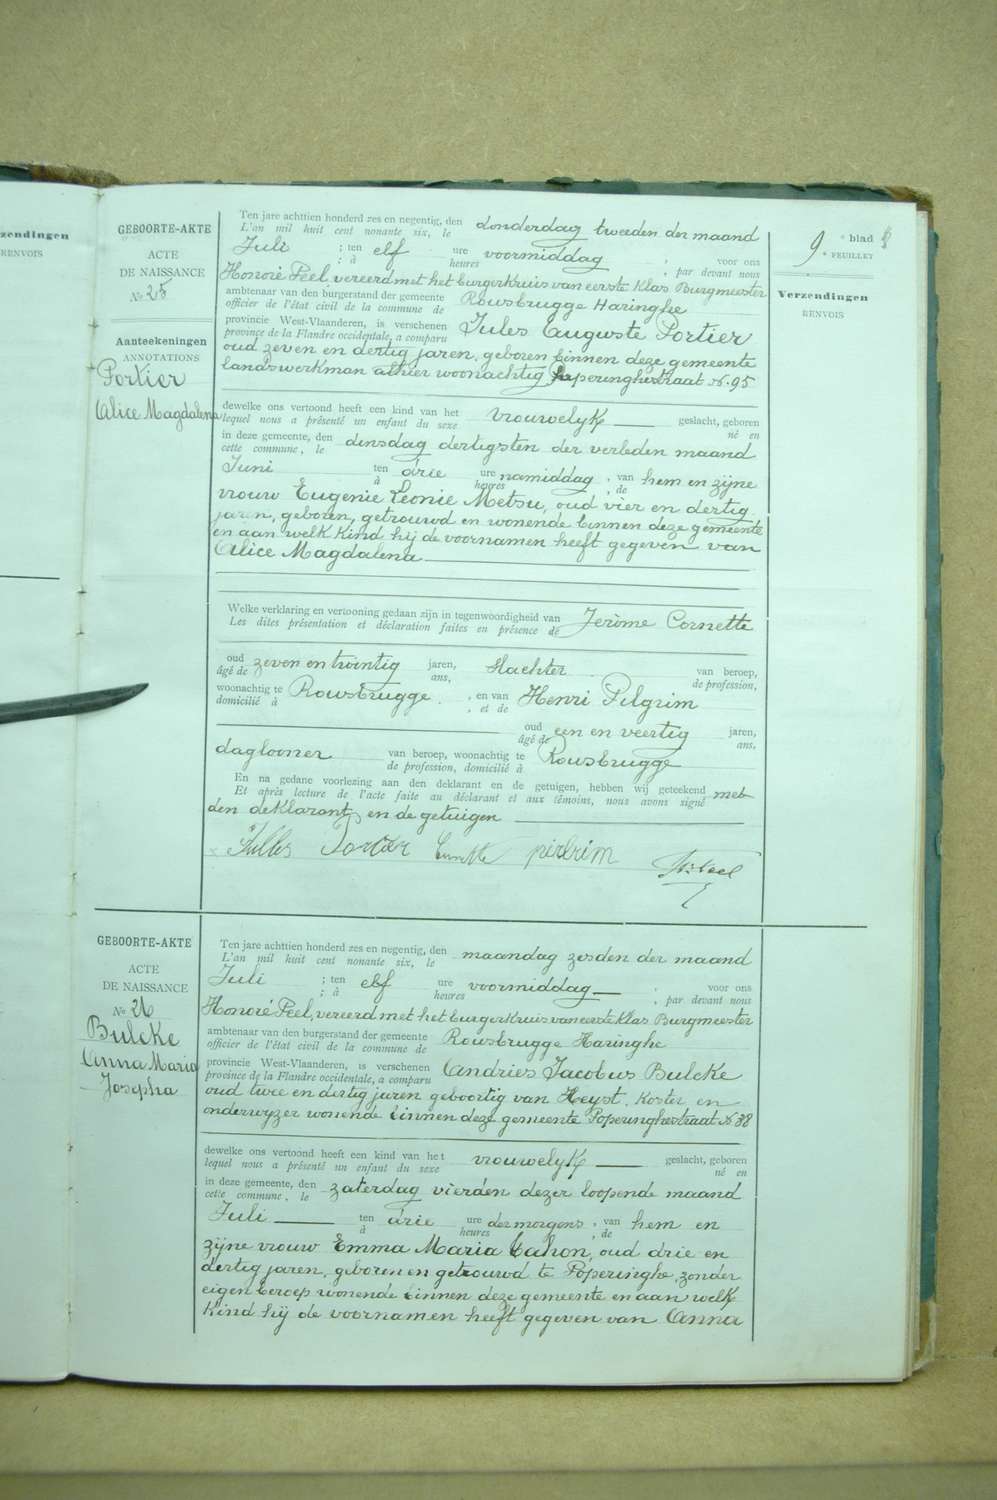 zendingen
RENVOIS
GEBOORTE-AKTE
ACTE
DE NAISSANCE
No 25
Aanteekeningen
ANNOTATIONS
Portier
Alice Magdalena
Ten jare achttien honderd zes en negentig, den
L'an mil huit cent nonante six, le
donderdag tweeden der maand
Juli ; ten elf ure voormiddag ; voor ons
; à heures , par devant nous
Honoré Peel, vereerd met het burgerkruis van eerste Klas Burgmeester
ambtenaar van den burgerstand der gemeente
officier de l'état civil de la commune de
Rousbrugge Haringhe
provincie West-Vlaanderen, is verschenen
province de la Flandre occidentale, a comparu
Jules Auguste Portier
oud zeven en dertig jaren, geboren binnen deze gemeente
landswerkman alhier woonachtig Poperinghestraat No. 95
dewelke ons vertoond heeft een kind van het
lequel nous a présenté un enfant du sexe
vrouwelyk geslacht, geboren
né en
in deze gemeente, den
cette commune, le
dinsdag dertigsten der verleden maand
Juni ten drie ure namiddag , van hem en zijne
à heures , de
vrouw Eugenie Leonie Metsu, oud vier en dertig
jaren, geboren, getrouwd en wonende binnen deze gemeente
en aan welk kind hij de voornamen heeft gegeven van
Alice Magdalena
Welke verklaring en vertooning gedaan zijn in tegenwoordigheid van
Les dites présentation et déclaration faites en présence de
Jérôme Cornette
oud zeven en twintig jaren, slachter van beroep,
âgé de ans, de profession,
woonachtig te Rousbrugge , en van Henri Pilgrim
domicilié à , et de
oud een en veertig jaren,
âgé de ans.
daglooner van beroep, woonachtig te Rousbrugge
de profession, domicilié à
En na gedane voorlezing aan den deklarant en de getuigen, hebben wij geteekend met
Et après lecture de l'acte faite au déclarant et aux témoins, nous avons signé
den deklarant en de getuigen
Portier pirlrim
9e blad
e FEUILLET
Verzendingen
RENVOIS
GEBOORTE-AKTE
ACTE
DE NAISSANCE
No 26
Bulcke
Anna Maria
Josepha
Ten jare achttien honderd zes en negentig, den
L'an mil huit cent nonante six, le
maandag zesden der maand
Juli ; ten elf ure voormiddag ; voor ons
; à heures , par devant nous
Honoré Peel, vereerd met het burgerkruis van eerste Klas Burgmeester
ambtenaar van den burgerstand der gemeente
officier de l'état civil de la commune de
Rousbrugge Haringhe
provincie West-Vlaanderen, is verschenen
province de la Flandre occidentale, a comparu
Andries Jacobus Bulcke
oud twee en dertig jaren geboortig van Heyst, Koster en
onderwyzer wonende binnen deze gemeente Poperinghestraat No 88
dewelke ons vertoond heeft een kind van het
lequel nous a présenté un enfant du sexe
vrouwelyk geslacht, geboren
né en
in deze gemeente, den
cette commune, le
zaterdag vierden dezer loopende maand
Juli ten drie ure der morgens , van hem en
à heures , de
zijne vrouw Emma Maria Cahon, oud drie en
dertig jaren, geboren en getrouwd te Poperinghe, zonder
eigen beroep wonende binnen deze gemeente en aan welk
kind hij de voornamen heeft gegeven van Anna